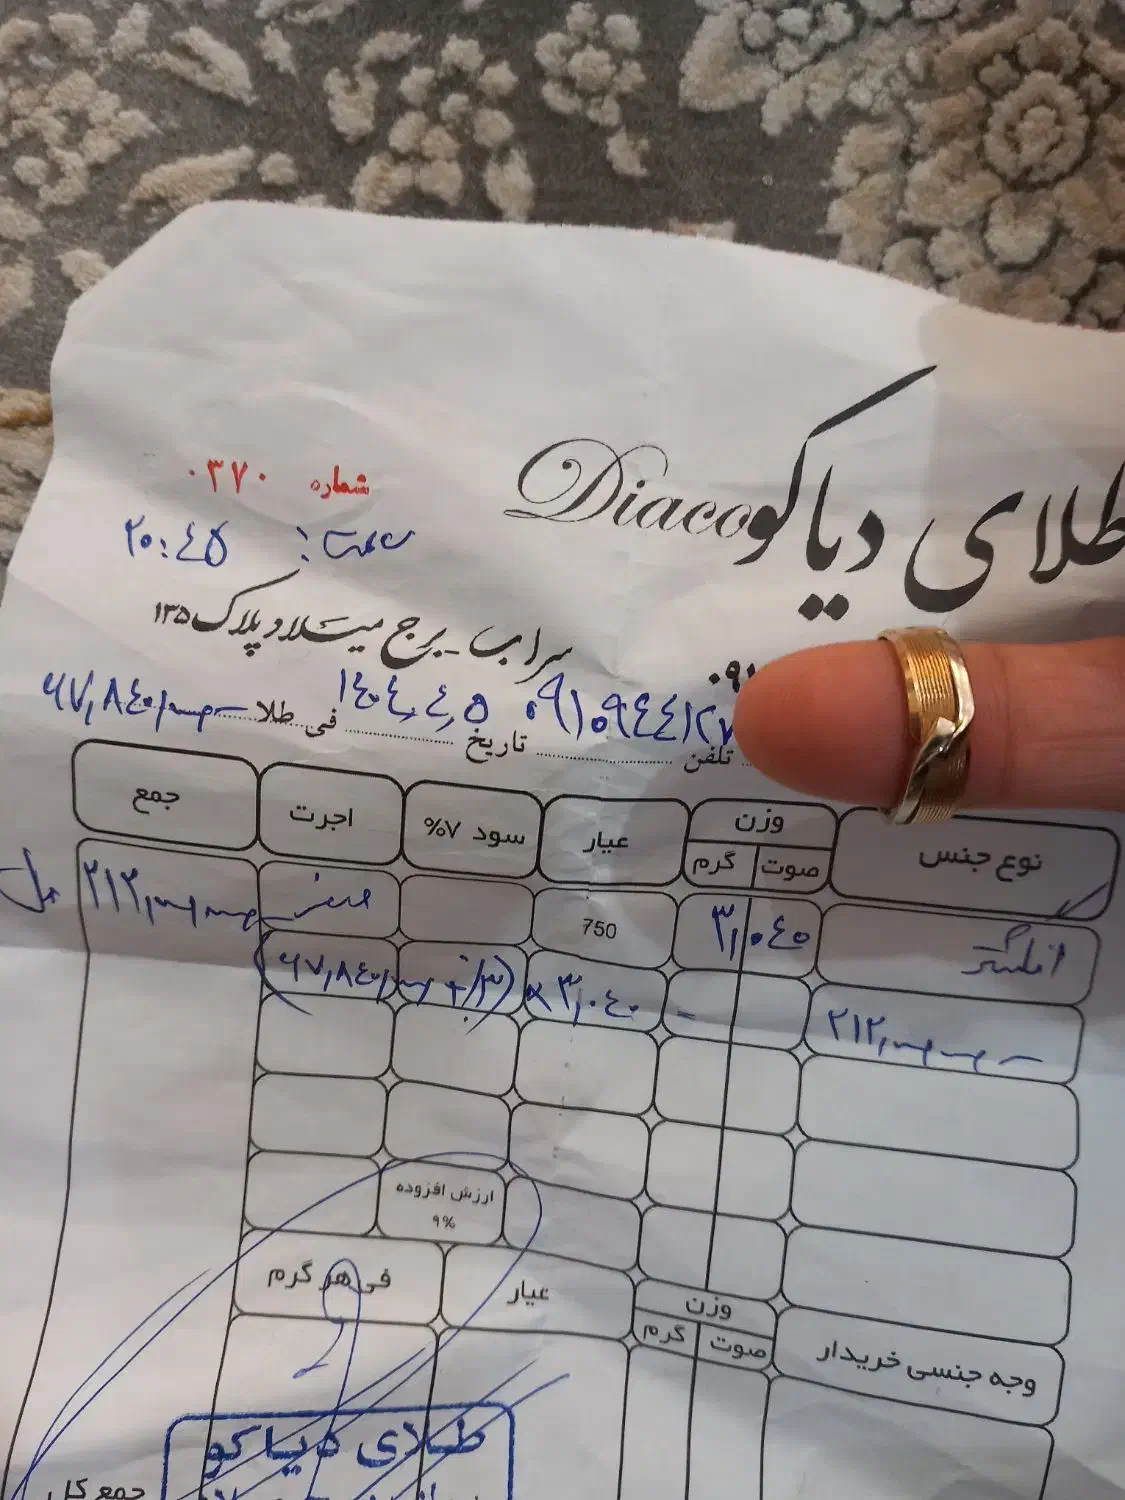 طلای دیاکو Diaco
شماره ۰۳۷۰
ساعت: ۲۰:۴۵
سراب - برج میلاد پلاک ۱۳۵
۰۹۱
تلفن ۰۹۱۰۹۴۴۱۲۷ تاریخ ۱۴۰۴,۴,۵ فی طلا ۶۷,۸۴۰,۰۰۰
نوع جنس وزن صوت گرم عیار سود ۷% اجرت جمع
انگشتر ۳,۰۴۰ 750 صفر ۲۱۲,۰۰۰,۰۰۰
(۶۷,۸۴۰,۰۰۰ + ٪۳) × ۳,۰۴۰ = ۲۱۲,۰۰۰,۰۰۰
ارزش افزوده
۹%
وجه جنسی خریدار وزن صوت گرم عیار فی هر گرم
طلای دیاکو
جمع کل